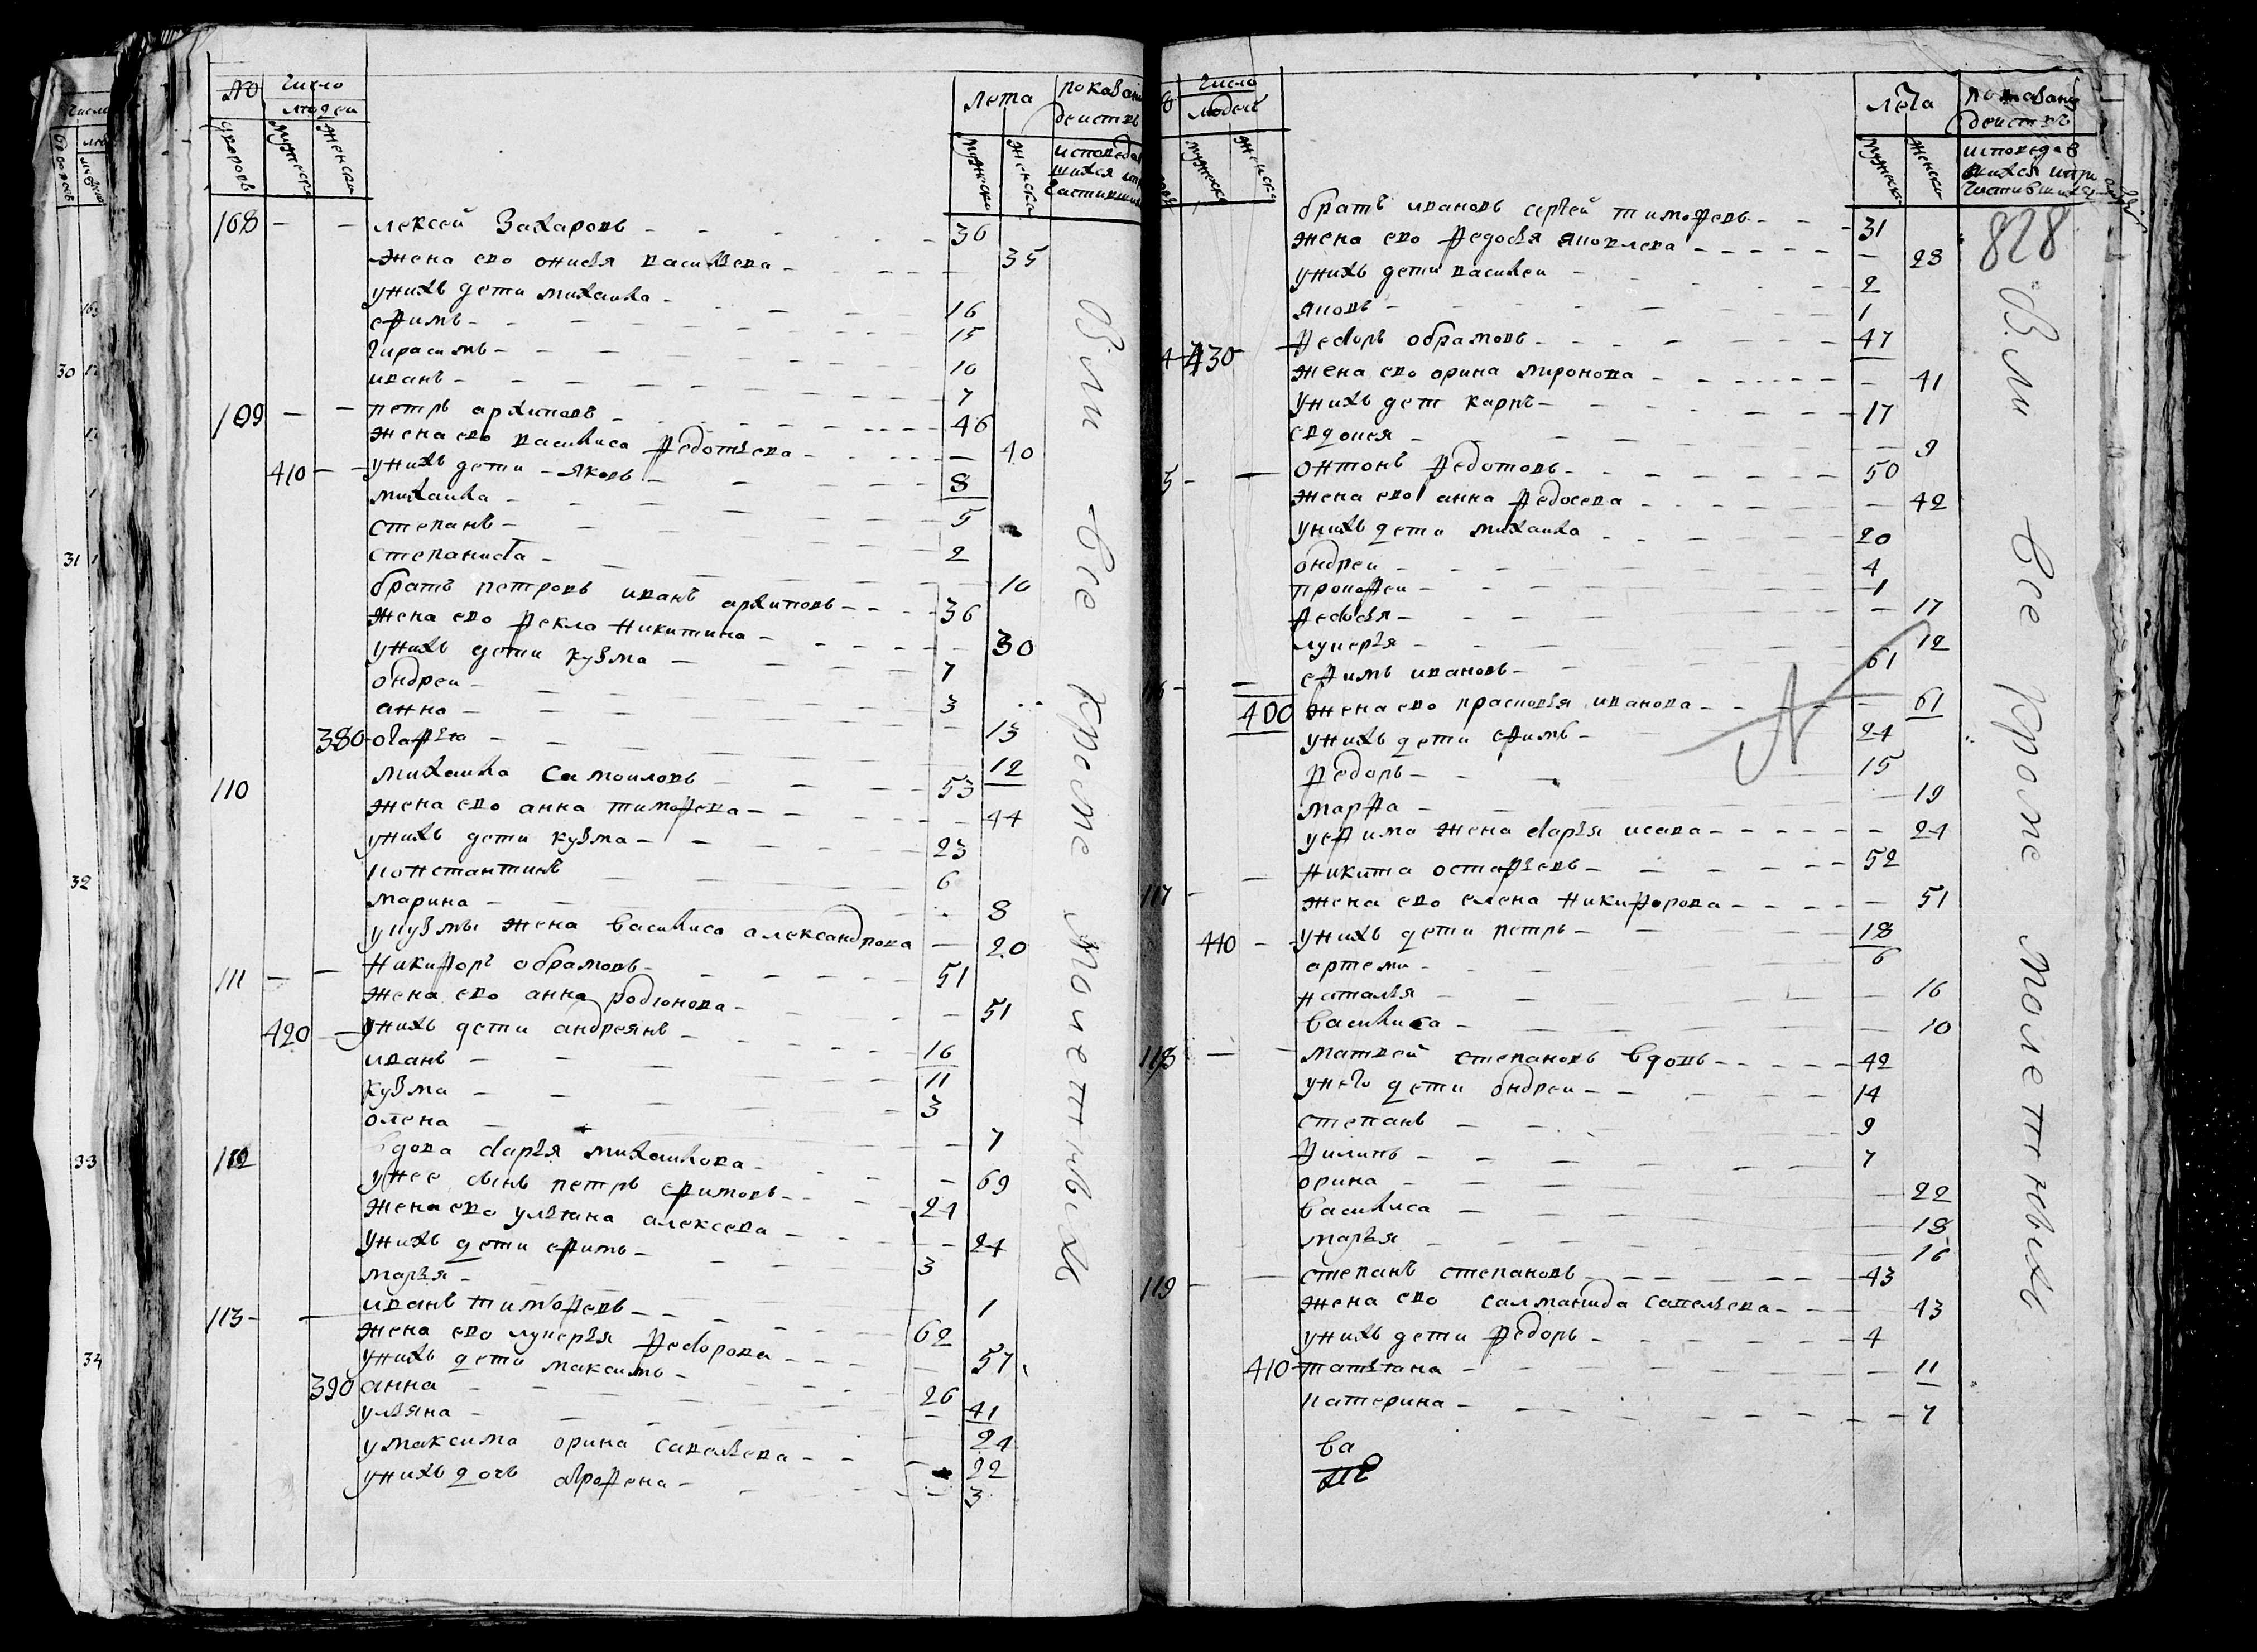 № Число Лета показани
людей деиствъ
дворовъ мужеска женска мужеска женска исповеда
шихся
108 - - лексей Захаровъ - 36
жена ево онисья василева - 35
унихъ дети михаила - 16
ефимъ - 15
гирасимъ - 10
иванъ - 7
109 - - петръ архиповъ - 46
жена ево василиса федотьева - 40
410 - - унихъ дети - яковъ - 8
михаила - 5
степанъ - 2
степанида - 10
братъ петровъ иванъ архиповъ - 36
жена ево фекла никитина - 30
унихъ дети кузма - 7
ондреи - 3
анна - 13
380 огафью - 12
110 михаила самоиловъ - 53
жена ево анна тимофева - 44
унихъ дети кузма - 23
констянтинъ 6
марина - 8
укузмы жена василиса александрова - 20
111 - - никифоръ обрамовъ - 51
жена ево анна родионова - 51
420 - унихъ дети андреянъ - 16
иванъ - 11
кузма - 3
олена - 7
112 вдова дарья михаилова - 69
унее сынъ петръ ефимовъ - 24
жена ево ульяна алексева - 24
унихъ дети ефимъ - 3
марья - 1
113 - - иванъ тимофевъ - 62
жена ево лукерья федорова - 57
унихъ дети максимъ - 26
390 анна - 41
ульяна - 24
умаксима орина савельева - 22
унихъ дочь офрофена - 3
Были Все кроме малетнвихъ
Число Лета показани
людей деиствъ
мужеска женска мужеска женска исповедав
шихся ипри
частившихся
828
братъ ивановъ сергей тимофевъ - 31
жена ево федосья яковлева - 28
унихъ дети василеи - 2
яковъ - 1
430 - федоръ обрамовъ - 47
жена ево орина миронова - 41
унихъ дет карпъ - 17
евдокея - 9
5 - - онтонъ федотовъ - 50
жена ево анна федосева - 42
унихъ дети михаила 20
ондреи - 4
прокофеи - 1
федосья - 17
лукерья - 12
- - ефимъ ивановъ - 61
400 жена ево прасковья иванова - 61
унихъ дети ефимъ - 24
федоръ - 15
марфа - 19
уефима жена дарья исаева - 24
117 - - никита остафьевъ - 52
жена ево елена никифорова - 51
440 - - унихъ дети петръ - 18
артеми - 6
наталья - 16
василиса - 10
118 - - матвей степановъ вдовъ - 42
унего дети ондреи - 14
степанъ - 9
филипъ - 7
орина - 22
василиса - 18
марья - 16
119 - - степанъ степановъ - 43
жена ево салманида савельева - 43
унихъ дети федоръ - 4
410 татьяна - 11
катерина - 7
Были Все кроме малетнвихъ